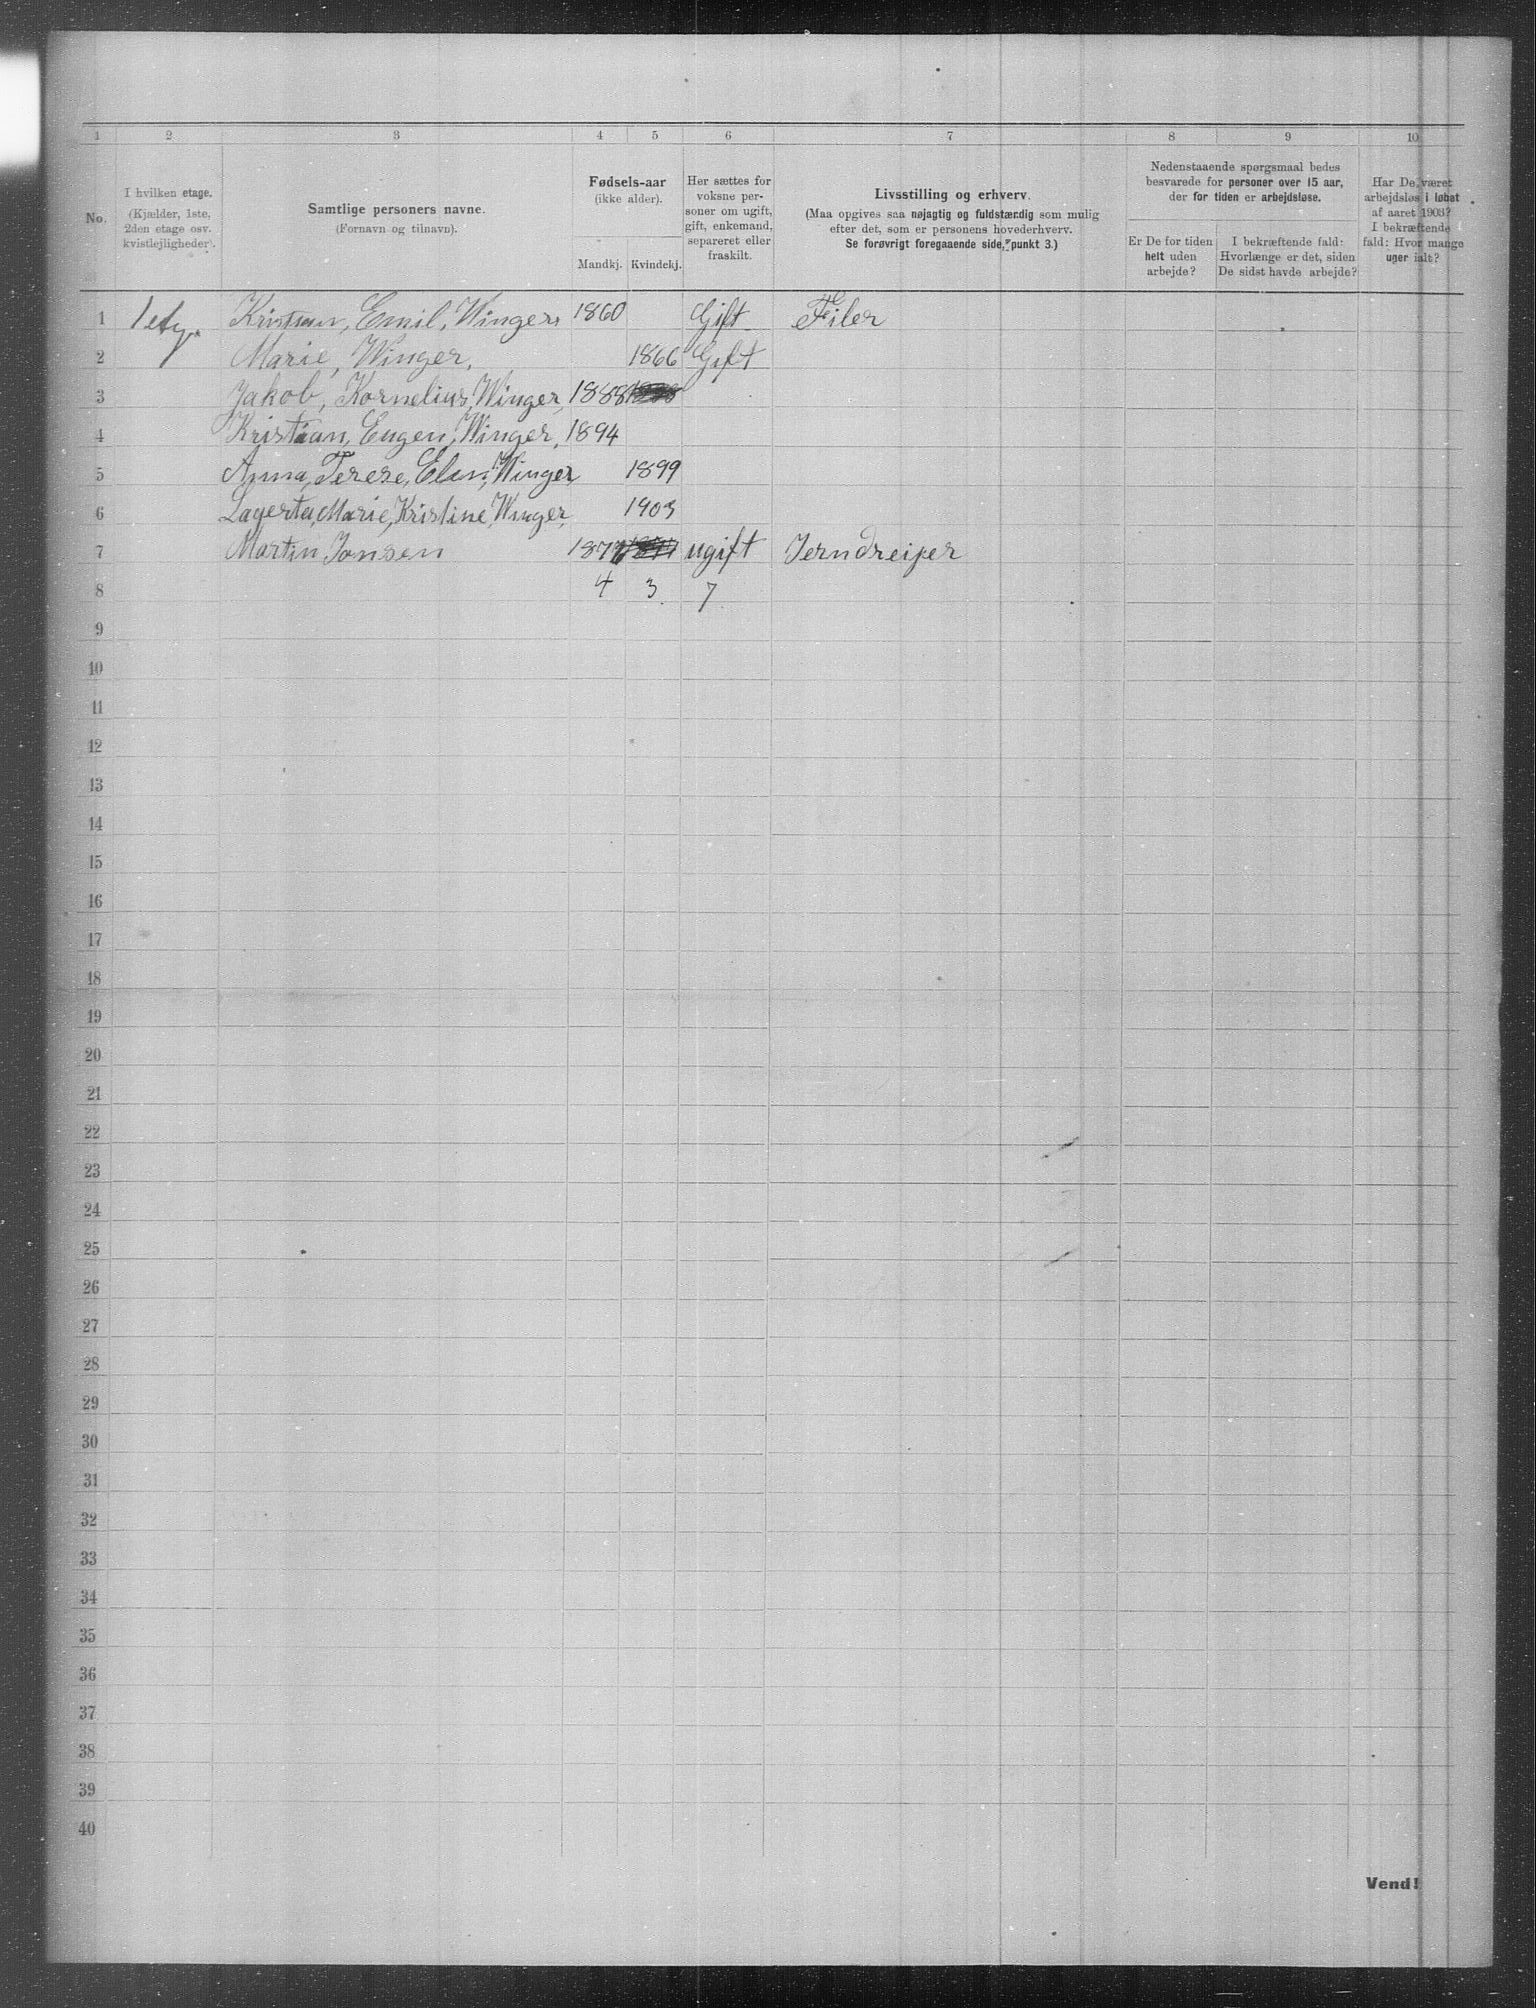 1 2 3 4 5 6 7 8 9 10
No.
I hvilken etage.
(Kjælder, 1ste,
2den etage osv.
kvistlejligheder).
Samtlige personers navne.
(Fornavn og tilnavn).
Fødsels-aar
(ikke alder).
Mandkj. Kvindekj.
Her sættes for
voksne per-
soner om ugift,
gift, enkemand,
separeret eller
fraskilt.
Livsstilling og erhverv.
(Maa opgives saa nøjagtig og fuldstændig som mulig
efter det, som er personens hovederhverv.
Se forøvrigt foregaaende side, punkt 3.)
Nedenstaaende spørgsmaal bedes
besvarede for personer over 15 aar,
der for tiden er arbejdsløse.
Er De for tiden
helt uden
arbejde?
I bekræftende fald:
Hvorlænge er det, siden
De sidst havde arbejde?
Har De været
arbejdsløs i løbet
af aaret 1903?
I bekræftende
fald: Hvor mange
uger ialt?
1 1 etg. Kristian, Emil, Winger, 1860 Gift Filer
2 Marie, Winger, 1866 Gift
3 Jakob, Kornelius, Winger, 1888
4 Kristian, Eugen, Winger, 1894
5 Anna, Terese, Winger 1899
6 Lagerta, Marie, Kristine, Winger, 1903
7 Martin Jonsen 1877 ugift Jerndreijer
8 4 3 7
9
10
11
12
13
14
15
16
17
18
19
20
21
22
23
24
25
26
27
28
29
30
31
32
33
34
35
36
37
38
39
40
Vend!